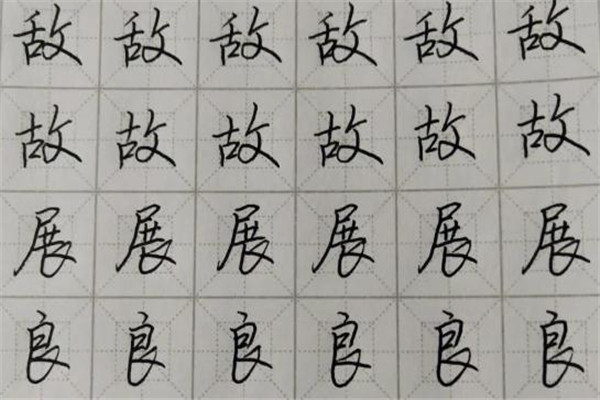 敌敌敌敌敌敌
故故故故故故
展展展展展展
良良良良良良